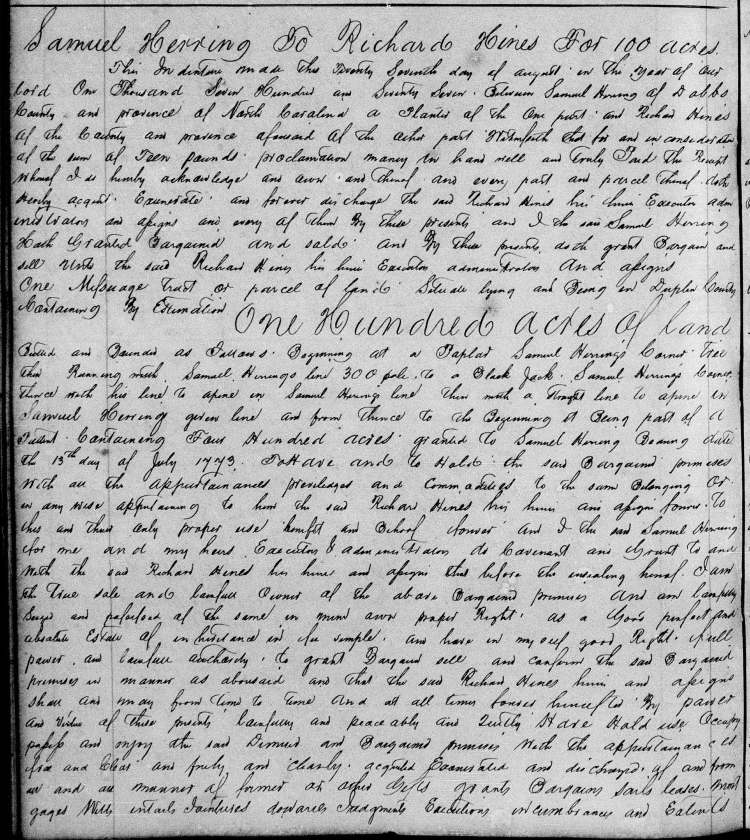 Samuel Herring To Richard Hines For 100 acres.
This Indenture made this Twenty Seventh day of august in the Year of our
Lord One Thousand Seven Hundred an Seventy Seven Between Samuel Herring of Dobbs
County and province of North Carolina a Planter of the One part and Richard Hines
of the County and province aforesaid of the other part Witnesseth that for and in consideration
of the sum of Teen pounds proclamation money in hand well and Truly Paid the Receipt
whereof I do hereby acknowledge and own and thereof and every part and parcel thereof doth
hereby acquit Exonerate and forever discharge the said Richard Hines his heirs Executors adm
inistrators and assigns and every of them By these presents and I the said Samuel Herring
Hath Granted Bargained and sold and By these presents doth grant Bargain and
sell Unto the said Richard Hines his heirs Executors administrators And assigns
One Messuage Tract or parcel of land Situate lying and Being in Duplin County
Containing By Estimation One Hundred acres of land
Butted and Bounded as Follows Beginning at a Poplar Samuel Herrings Corner Tree
then Running with Samuel Herrings line 300 pole to a Black Jack Samuel Herrings Corner
thence with his line to a pine in Samuel Herrings line then with a Straght line to a pine in
Samuel Herring given line and from thence to the Beginning it Being part of a
Patent Containing Four Hundred acres granted to Samuel Herring Bearing date
the 13th day of July 1773. To Have and to Hold the said Bargaind premises
With all the appurtainances priveledges and Commodities to the same Belonging Or
in any wise appertaining to him the said Richard Hines his heirs and assigns forever To
his and their only proper use benefit and Behoof forever and I the said Samuel Herring
for me and my heirs Executors & administrators do Covenant and Grant to and
With the said Richard Hines his heirs and assigns that before the ensealing hereof I am
the True sole and lawfull Owner of the above Bargaind premises and am lawfully
Seized and possessed of the same in mine own proper Right as a Good perfect and
absolute Estate of inheritance in fee simple and have in my self good Right full
power and lawfull authority to grant Bargain sell and confirm the said Bargained
premises in manner as abovesaid and that the said Richard Hines heirs and assigns
shall and may from time to time And at all times By power
and virtue of these presents lawfully and peaceably and Quietly Have Hold use Occupy
possess and enjoy the said Demised and Bargained premises With the appurtainances
free and Clear and freely and clearly acquited Exonerated and discharged of and from
all and all manner of former or other Gifts grants Bargains Sails leases Mort
gages Wills intails Jointures dowries Judgments Executions incumbrances and